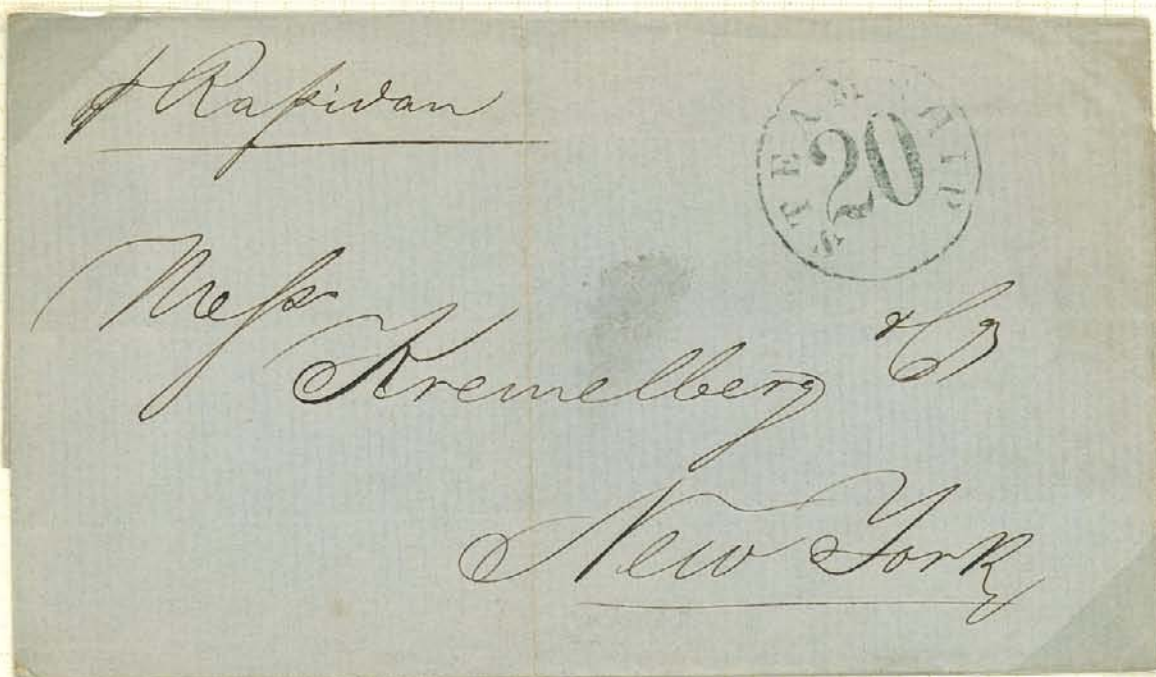 p Rapidan
STEAMSHIP
20
Mess
Kremelberg & Co
New York